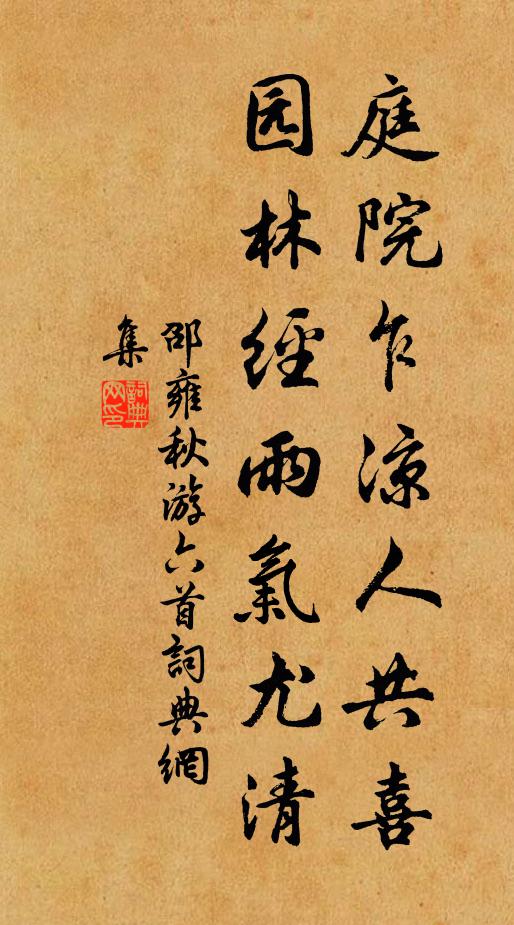 庭院乍凉人共喜
园林經雨氣尤清
邵雍秋游六首詞典網
集
詞典網印